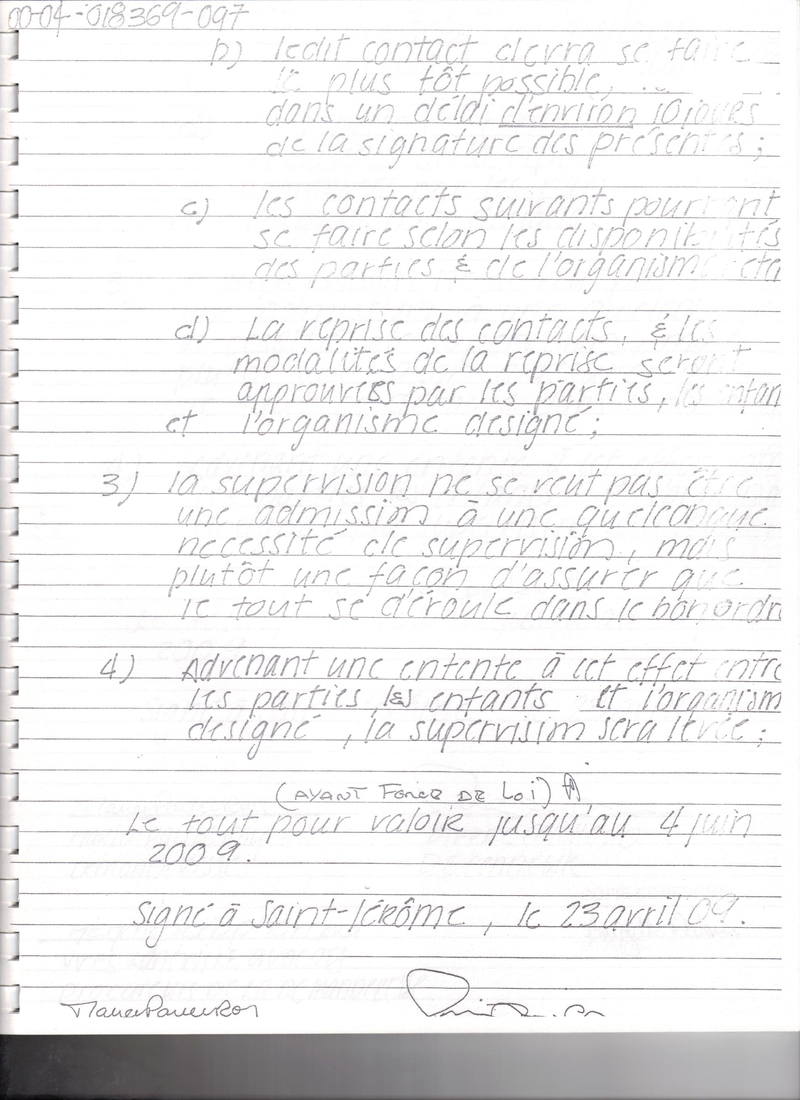 00-04-018369-097
b) ledit contact devra se faire
le plus tôt possible,
dans un délai d'environ 10 jours
de la signature des présentes;
c) les contacts suivants pourront
se faire selon les disponibilités
des parties & de l'organisme
d) La reprise des contacts, & les
modalités de la reprise seront
approuvées par les parties, les enfan
et l'organisme designé;
3) la supervision ne se veut pas être
une admission à une quelconque
necessité de supervision, mais
plutôt une façon d'assurer que
le tout se déroule dans le bon ordr
4) Advenant une entente à cet effet entre
les parties, les enfants et l'organism
designé, la supervision sera levée;
(AYANT FORCE DE LOI)
Le tout pour valoir jusqu'au 4 juin
2009.
Signé à Saint-Jérôme, le 23 avril 09.